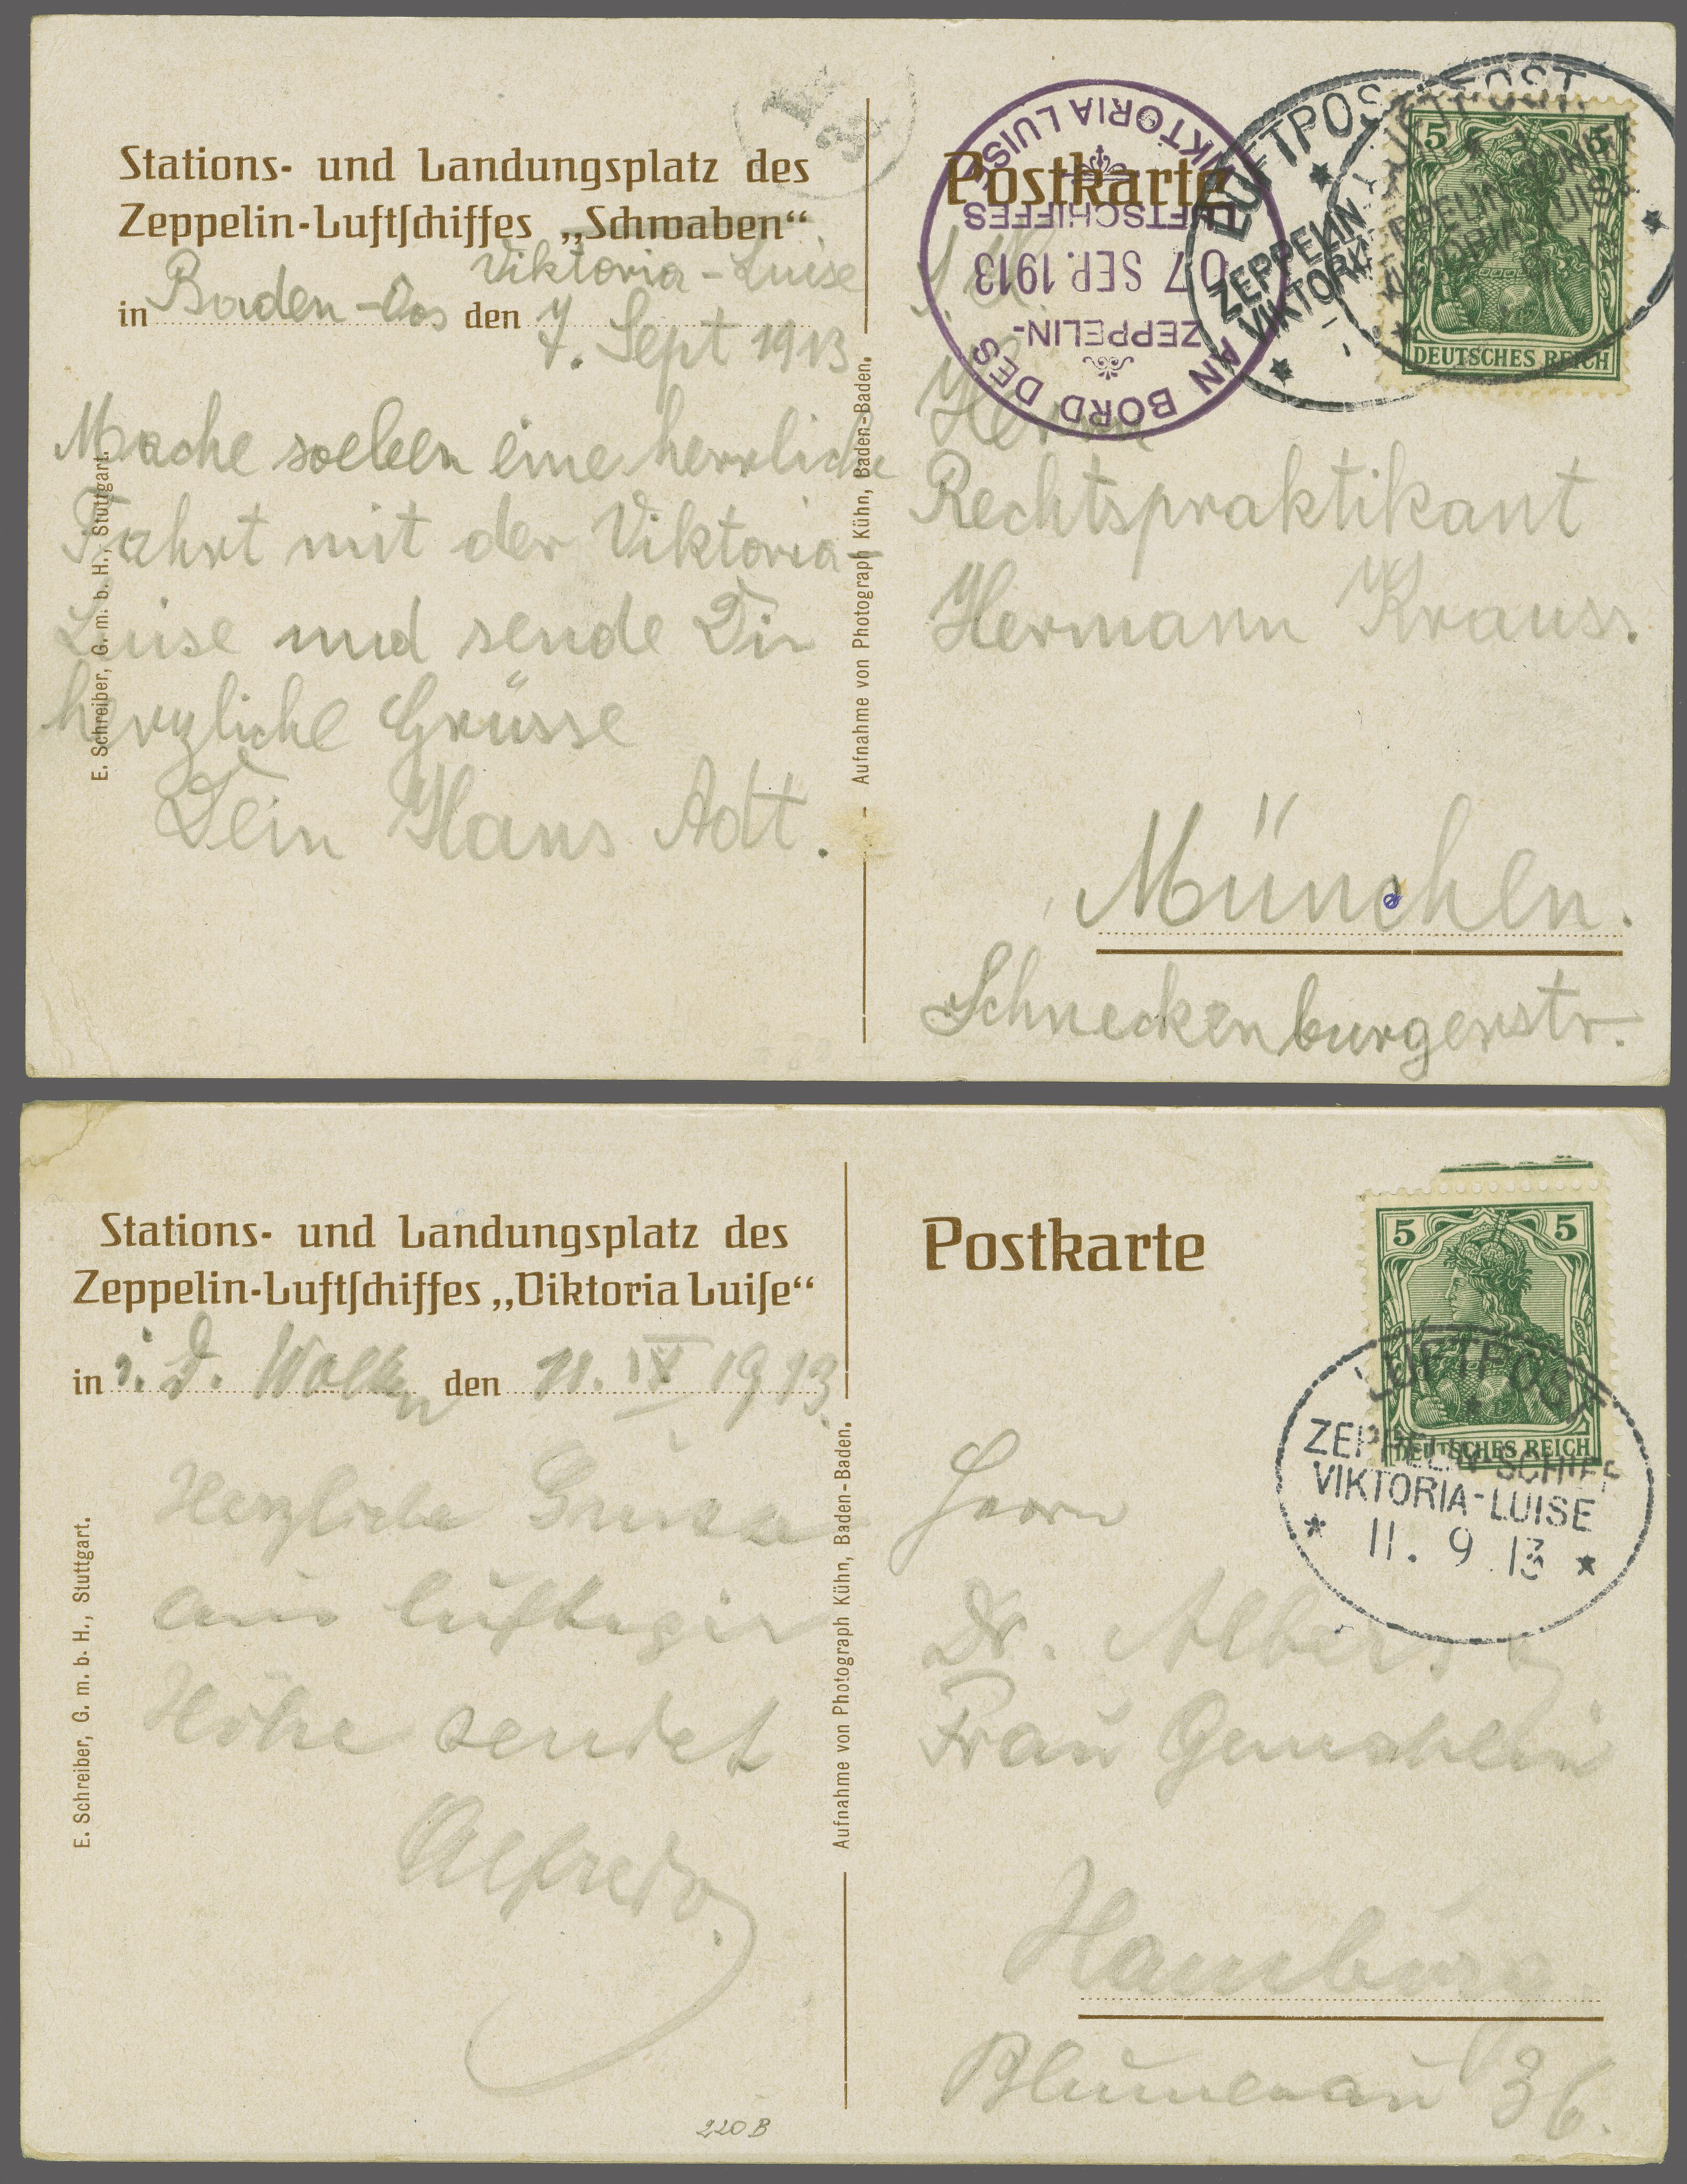 Stations- und Landungsplatz des
Zeppelin-Luftschiffes „Schwaben“
Viktoria-Luise
in Baden-Oos den 7. Sept 1913
Mache soeben eine herrliche
Fahrt mit der Viktoria-
Luise und sende Dir
herzliche Grüsse
Dein Hans Adt.
E. Schreiber, G. m. b. H., Stuttgart.
Aufnahme von Photograph Kühn, Baden-Baden.
Postkarte
AN BORD DES
ZEPPELIN-
07 SEP. 1913
LUFTSCHIFFES
VIKTORIA LUISE
LUFTPOST
ZEPPELIN
VIKTORIA
LUFTPOST
ZEPPELIN SCHIFF
VIKTORIA LUISE
5 5
DEUTSCHES REICH
Herrn
Rechtspraktikant
Hermann Krauss.
München.
Schneckenburgerstr.
Stations- und Landungsplatz des
Zeppelin-Luftschiffes „Viktoria Luise“
in i. d. Wolken den 11. IX 1913
Herzliche Grüsse
aus luftiger
Höhe sendet
Alfred.
E. Schreiber, G. m. b. H., Stuttgart.
Aufnahme von Photograph Kühn, Baden-Baden.
220 B
Postkarte
5 5
DEUTSCHES REICH
LUFTPOST
ZEPPELIN SCHIFF
VIKTORIA-LUISE
11. 9. 13
Herrn
Dr. Albers
Frau Gemahlin
Hamburg.
Blumenau 36.